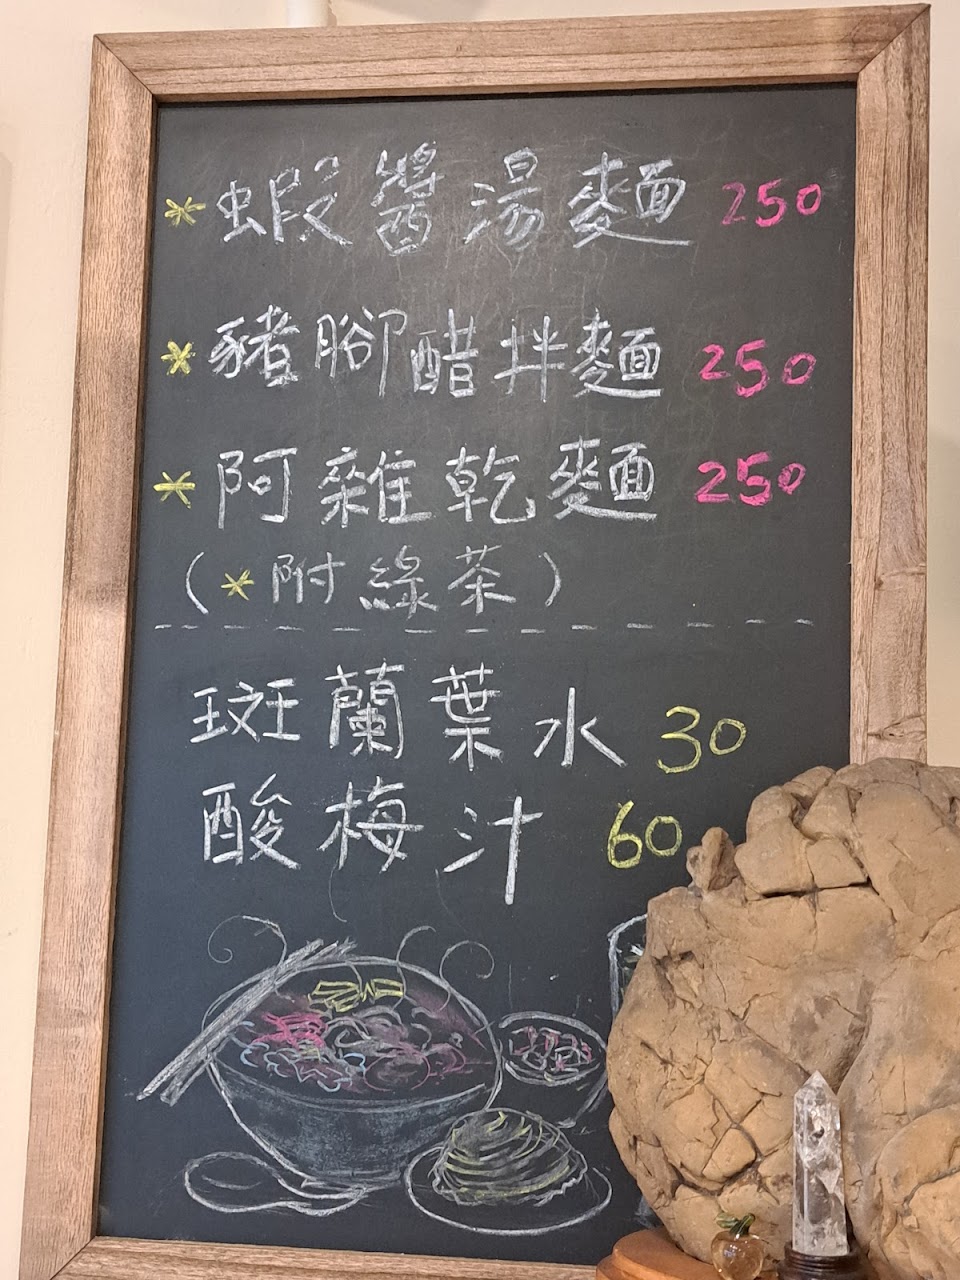 *蝦醬湯麵 250
*豬腳醋拌麵 250
*阿雜乾麵 250
(*附綠茶)
斑蘭葉水 30
酸梅汁 60